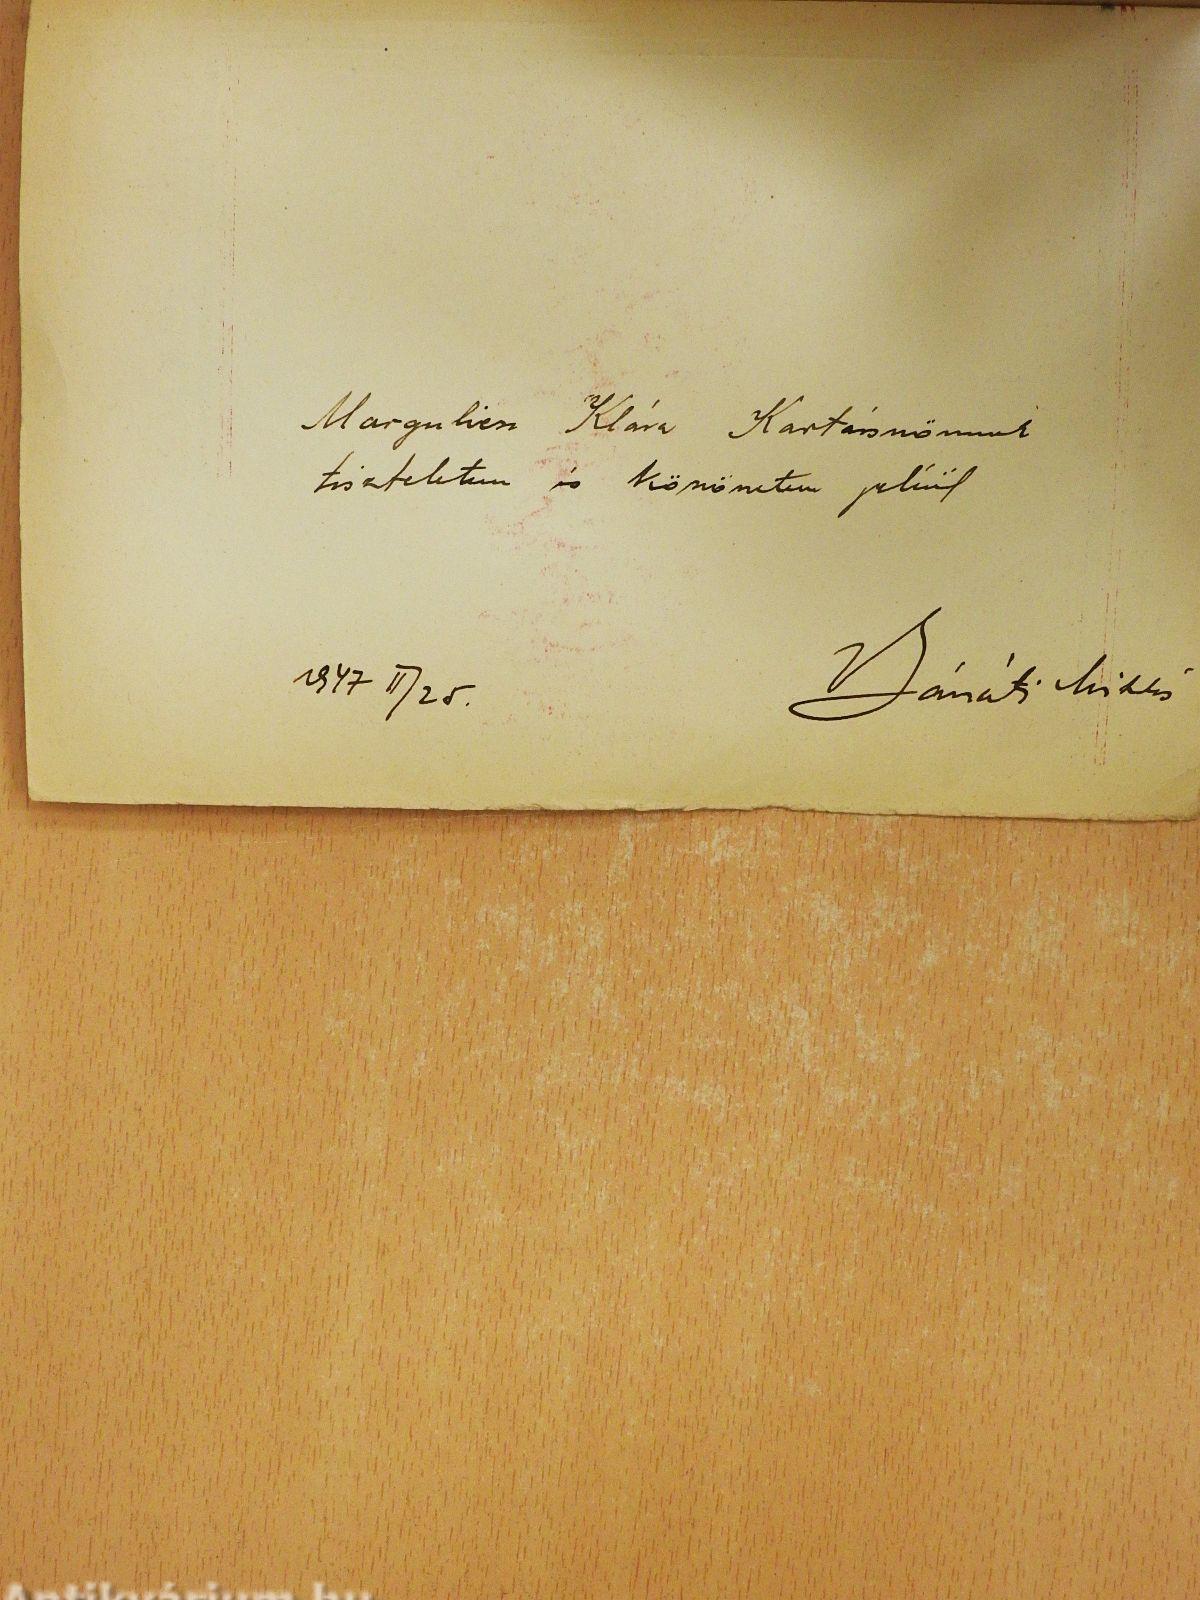 Margulies Klára Kartársnőmnek
tiszteletem és köszönetem jeléül
1947 II/25.
Bánáti Miklós
Antikvárium.hu